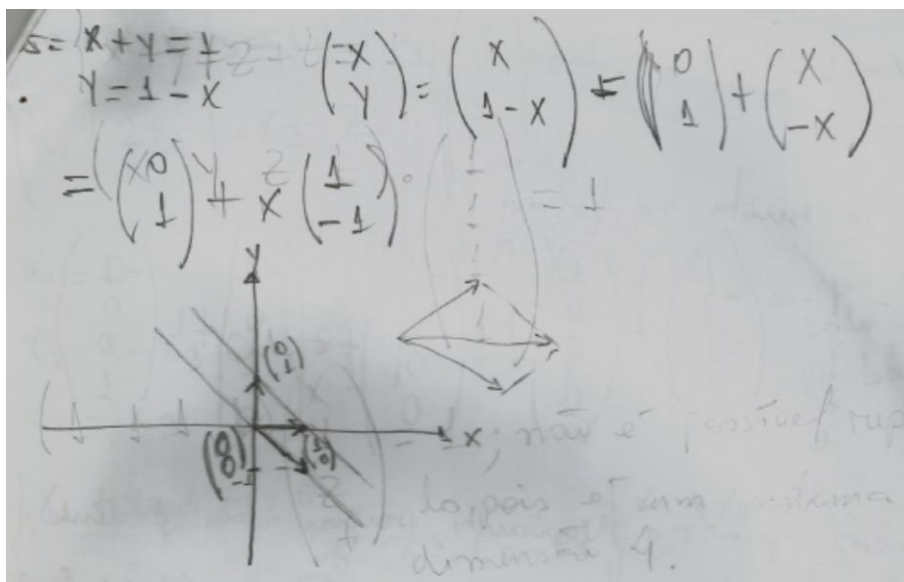 S = x + y = 1
y = 1 - x (x y) = (x 1-x) = (0 1) + (x -x)
= (0 1) + x (1 -1)
= 1
y
(0 1)
x
(0 0)
(1 0)
-1
não é possível
lo, pois é um sistema
dimensão 4.